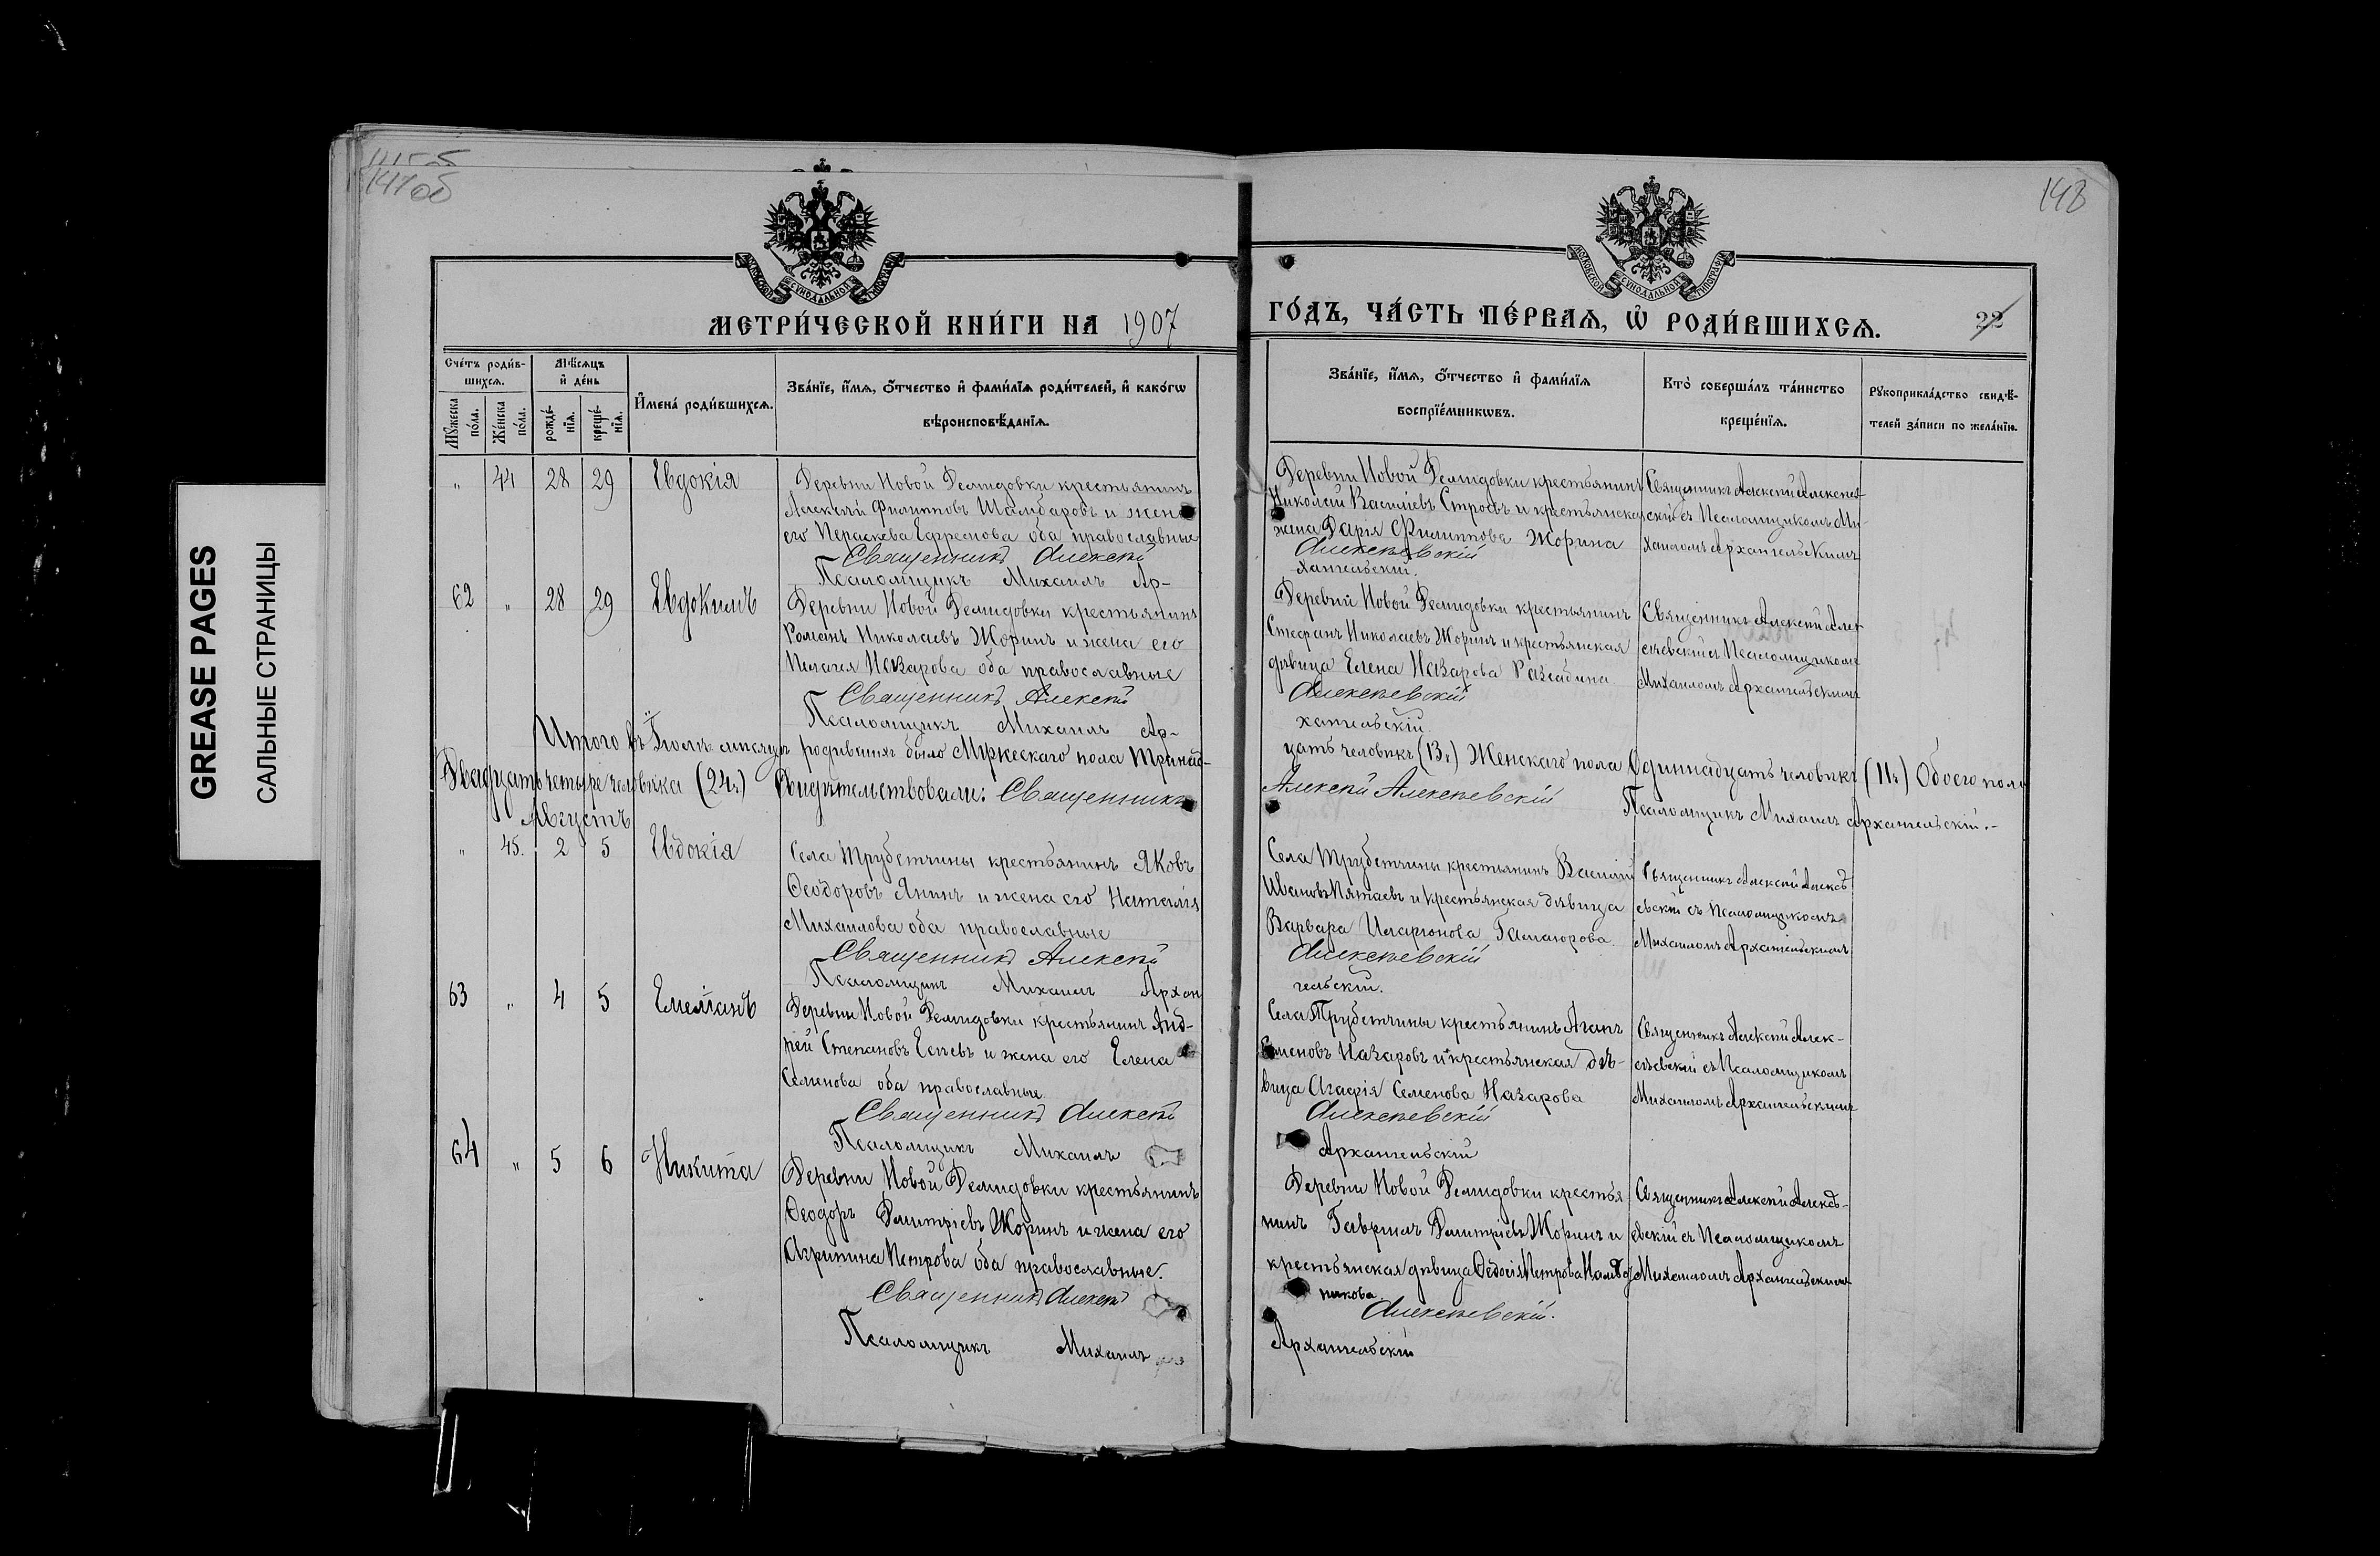 147об
148
МОСКОВСКОЙ СѴНОДАЛЬНОЙ ТИПОГРАФІИ
МОСКОВСКОЙ СѴНОДАЛЬНОЙ ТИПОГРАФІИ
МЕТРИ́ЧЕСКОЙ КНИ́ГИ НА 1907
ГО́ДЪ, ЧА́СТЬ ПЕ́РВАЯ, Ѡ РОДИ́ВШИХСЯ.
22
GREASE PAGES
САЛЬНЫЕ СТРАНИЦЫ
Сче́тъ роди́в-
шихся.
Мѣ́сяцъ
и де́нь
Му́жеска по́ла.
Же́нска по́ла.
рожде́-
нія.
креще́-
нія.
Имена́ роди́вшихся.
Зва́нїе, и́мя, о́тчество и фами́лїя роди́телей, и како́гѡ
вѣроисповѣ́данїя.
Зва́нїе, и́мя, о́тчество и фами́лїя
воспрїе́мникѡвъ.
Кто̀ соверша́лъ та́инство
креще́нїя.
Рукоприкла́дство свидѣ́-
телей за́писи по жела́нїю.
" 44 28 29 Евдокія
Деревни Новой Демидовки крестьянинъ
Алексѣй Филипповъ Шамбаровъ и жена
его Параскева Ефремова оба православные
Священникъ Алексѣй
Псаломщикъ Михаилъ Ар-
Деревни Новой Демидовки крестьянинъ
Николай Васильевъ Строевъ и крестьянская
жена Дарія Филиппова Жорина
Алексѣевскій
хангельскій.
Священникъ Алексѣй Алексѣев-
скій съ Псаломщикомъ Ми-
хаиломъ Архангельскимъ
62 " 28 29 Евдокимъ
Деревни Новой Демидовки крестьянинъ
Романъ Николаевъ Жоринъ и жена его
Пелагея Назарова оба православные
Священникъ Алексѣй
Псаломщикъ Михаилъ Ар-
Деревни Новой Демидовки крестьянинъ
Стефанъ Николаевъ Жоринъ и крестьянская
дѣвица Елена Назарова
Алексѣевскій
хангельскій
Священникъ Алексѣй Алек-
сѣевскій съ Псаломщикомъ
Михаиломъ Архангельскимъ
Итого въ Іюлѣ мѣсяцѣ родившихся было Мужескаго пола Тринад-
цать человѣкъ (13ч.) Женскаго пола Одиннадцать человѣкъ (11ч.) Обоего пола
Двадцать четыре человѣка (24ч.) Свидѣтельствовали: Священникъ
Алексѣй Алексѣевскій
Псаломщикъ Михаилъ Архангельскій.-
Августъ
" 45. 2 5 Евдокія
Села Трубетчины крестьянинъ Яковъ
Ѳеодоровъ Янинъ и жена его Наталія
Михаилова оба православные
Священникъ Алексѣй
Псаломщикъ Михаилъ Архан
Села Трубетчины крестьянинъ Василій
Ивановъ Пятаевъ и крестьянская дѣвица
Варвара Иларіонова Гамаюрова
Алексѣевскій
гельскій.
Священникъ Алексѣй Алексѣ-
евскій съ Псаломщикомъ
Михаиломъ Архангельскимъ
63 " 4 5 Емеліанъ
Деревни Новой Демидовки крестьянинъ Анд-
рей Степановъ и жена его Елена
Семенова оба православные
Священникъ Алексѣй
Псаломщикъ Михаилъ
Села Трубетчины крестьянинъ Агапъ
Семеновъ Назаровъ и крестьянская дѣ-
вица Агафія Семенова Назарова
Алексѣевскій
Архангельскій
Священникъ Алексѣй Алек-
сѣевскій съ Псаломщикомъ
Михаиломъ Архангельскимъ
64 " 5 6 Никита
Деревни Новой Демидовки крестьянинъ
Ѳеодоръ Димитріевъ Жоринъ и жена его
Агрипина Петрова оба православные.
Священникъ Алексѣй
Псаломщикъ Михаилъ
Деревни Новой Демидовки крестья
нинъ Гавриилъ Димитріевъ Жоринъ и
крестьянская дѣвица Ѳедосія Петрова
никова
Алексѣевскій.
Архангельскій
Священникъ Алексѣй Алексѣ-
евскій съ Псаломщикомъ
Михаиломъ Архангельскимъ